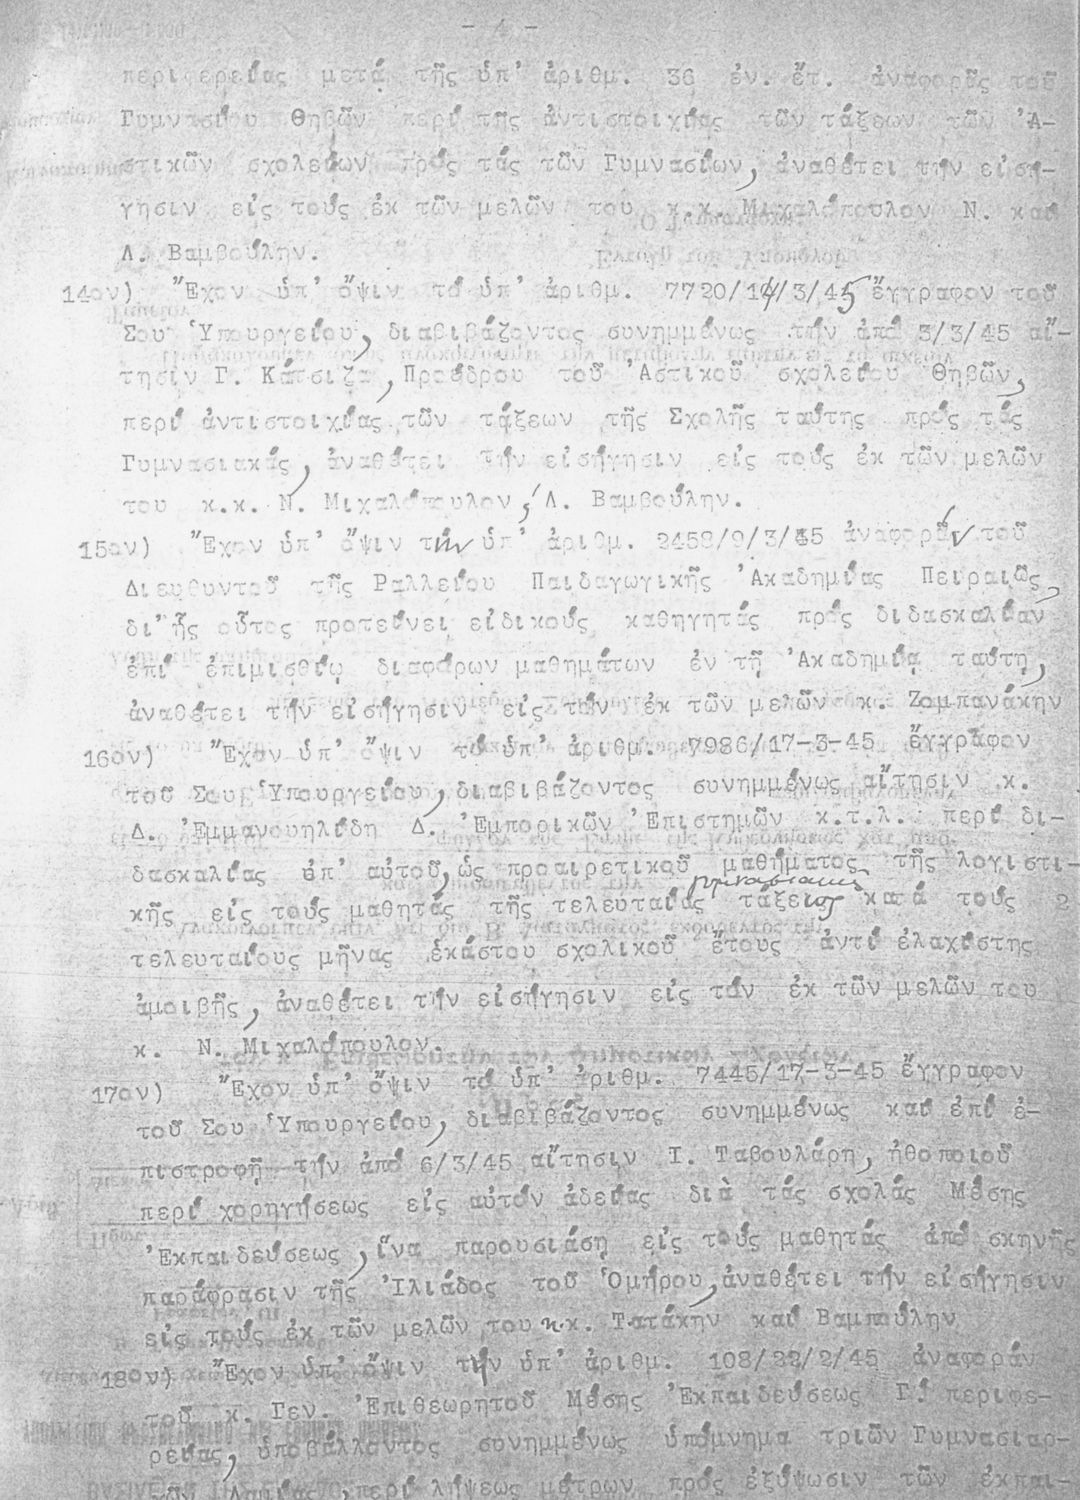 - 4 -
περιφερείας μετά τῆς ὑπ' ἀριθμ. 36 ἐν. ἔτ. ἀναφορᾶς τοῦ
Γυμνασίου Θηβῶν περί τῆς ἀντιστοιχίας τῶν τάξεων τῶν 'Α-
στικῶν σχολείων πρός τάς τῶν Γυμνασίων, ἀναθέτει τήν εἰσή-
γησιν εἰς τούς ἐκ τῶν μελῶν του κ.κ. Μιχαλόπουλον Ν. καί
Λ. Βαμβούλην.
14ον) Ἔχον ὑπ' ὄψιν τό ὑπ' ἀριθμ. 7720/14/3/45 ἔγγραφον τοῦ
Σου Ὑπουργείου, διαβιβάζοντος συνημμένως τήν ἀπό 3/3/45 αἴ-
τησιν Γ. Κάτσιζα, Προέδρου τοῦ Ἀστικοῦ σχολείου Θηβῶν,
περί ἀντιστοιχίας τῶν τάξεων τῆς Σχολῆς ταύτης πρός τάς
Γυμνασιακάς, ἀναθέτει τήν εἰσήγησιν εἰς τούς ἐκ τῶν μελῶν
του κ.κ. Ν. Μιχαλόπουλον, Λ. Βαμβούλην.
15ον) Ἔχον ὑπ' ὄψιν τήν ὑπ' ἀριθμ. 2458/9/3/45 ἀναφοράν τοῦ
Διευθυντοῦ τῆς Ραλλείου Παιδαγωγικῆς Ἀκαδημίας Πειραιῶς,
δι' ἧς οὗτος προτείνει εἰδικούς καθηγητάς πρός διδασκαλίαν
ἐπί ἐπιμισθίῳ διαφόρων μαθημάτων ἐν τῇ Ἀκαδημίᾳ ταύτῃ,
ἀναθέτει τήν εἰσήγησιν εἰς τόν ἐκ τῶν μελῶν κ. Ζομπανάκην
16ον) Ἔχον ὑπ' ὄψιν τό ὑπ' ἀριθμ. 7986/17-3-45 ἔγγραφον
τοῦ Σου Ὑπουργείου, διαβιβάζοντος συνημμένως αἴτησιν κ.
Δ. Ἐμμανουηλίδη Δ. Ἐμπορικῶν Ἐπιστημῶν κ.τ.λ. περί δι-
δασκαλίας ὑπ' αὐτοῦ, ὡς προαιρετικοῦ μαθήματος τῆς λογιστι-
κῆς εἰς τούς μαθητάς τῆς τελευταίας γυμνασιακῆς τάξεως κατά τούς 2
τελευταίους μῆνας ἑκάστου σχολικοῦ ἔτους ἀντί ἐλαχίστης
ἀμοιβῆς, ἀναθέτει τήν εἰσήγησιν εἰς τόν ἐκ τῶν μελῶν του
κ. Ν. Μιχαλόπουλον.
17ον) Ἔχον ὑπ' ὄψιν τό ὑπ' ἀριθμ. 7445/17-3-45 ἔγγραφον
τοῦ Σου Ὑπουργείου, διαβιβάζοντος συνημμένως καί ἐπί ἐ-
πιστροφῇ τήν ἀπό 6/3/45 αἴτησιν Ι. Ταβουλάρη, ἠθοποιοῦ
περί χορηγήσεως εἰς αὐτόν ἀδείας διὰ τάς σχολάς Μέσης
Ἐκπαιδεύσεως, ἵνα παρουσιάσῃ εἰς τούς μαθητάς ἀπό σκηνῆς
παράφρασιν τῆς Ἰλιάδος τοῦ Ὁμήρου, ἀναθέτει τήν εἰσήγησιν
εἰς τούς ἐκ τῶν μελῶν του κ.κ. Τατάκην καί Βαμπούλην
18ον) Ἔχον ὑπ' ὄψιν τήν ὑπ' ἀριθμ. 108/22/2/45 ἀναφοράν
τοῦ κ. Γεν. Ἐπιθεωρητοῦ Μέσης Ἐκπαιδεύσεως Γ! περιφε-
ρείας, ὑποβάλλοντος συνημμένως ὑπόμνημα τριῶν Γυμνασιαρ-
χῶν Λαμίας, περί λήψεως μέτρων πρός ἐξύψωσιν τῶν ἐκπαι-